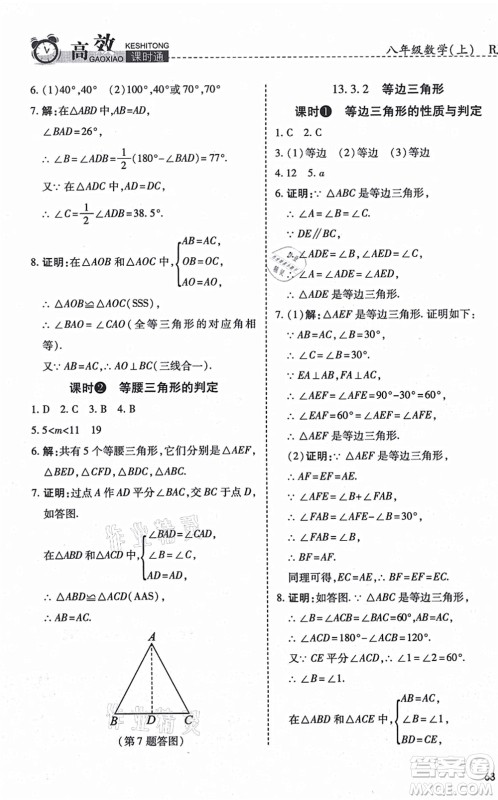 高效
GAOXIAO
KESHITONG
课时通
八年级数学(上) R
6. (1)40°,40° (2)100°,40° 或 70°,70°
7. 解:在△ABD 中,AB=AD,
∠BAD=26°,
∴∠B=∠ADB=1/2(180°-∠BAD)=77°.
又∵在△ADC 中,AD=DC,
∴∠C=1/2∠ADB=38.5°.
8. 证明:在△AOB 和△AOC 中,{AB=AC,
OB=OC,
AO=AO,
∴△AOB≌△AOC(SSS).
∴∠BAO=∠CAO(全等三角形的对应角相等).
又∵AB=AC,∴AO⊥BC(三线合一).
课时❷ 等腰三角形的判定
1. D 2. C 3. B 4. B
5. 5<m<11 19
6. 解:共有 5 个等腰三角形,它们分别是△AEF,△BED,△CFD,△EFD,△ABC.
7. 证明:过点 A 作 AD 平分∠BAC,交 BC 于点 D,如答图.
在△ABD 和△ACD 中,{∠BAD=∠CAD,
∠B=∠C,
AD=AD,
∴△ABD≌△ACD(AAS).
∴AB=AC.
A
B D C
(第 7 题答图)
13.3.2 等边三角形
课时❶ 等边三角形的性质与判定
1. C 2. C
3. (1)等边 (2)等边 (3)等边
4. 12 5. a
6. 证明:∵△ABC 是等边三角形,
∴∠A=∠B=∠C.
∵DE∥BC,
∴∠ADE=∠B,∠AED=∠C.
∴∠A=∠ADE=∠AED.
∴△ADE 是等边三角形.
7. (1)解:△AEF 是等边三角形.证明如下:
∵AB=AC,AD⊥BC,
∴∠AEF=∠AFE=90°-30°=60°.
∴∠AEF=∠FAE=∠AFE=60°.
∴△AEF 是等边三角形.
(2)证明:∵△AEF 是等边三角形,
∴AF=EF=AE.
∵∠FAB=∠AFE-∠B=60°-30°=30°,
∴∠FAB=∠B=30°.
∴BF=AF.
同理可得,CE=AE.∴BF=EF=EC.
8. 证明:如答图.∵△ABC 是等边三角形,
∴∠B=∠BAC=∠ACB=60°,AB=AC.
∴∠ACD=180°-∠ACB=120°.
又∵CE 平分∠ACD,∴∠ACE=60°.
在△ABD 和△ACE 中,{AB=AC,
∠B=∠ACE,
BD=CE,
63
作业精灵
作业精灵